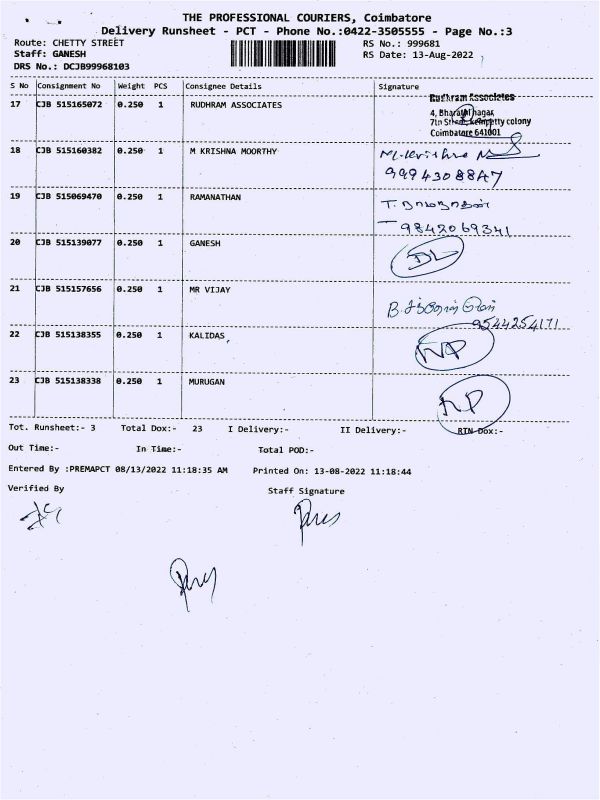 THE PROFESSIONAL COURIERS, Coimbatore
Delivery Runsheet - PCT - Phone No.:0422-3505555 - Page No.:3
Route: CHETTY STREET RS No.: 999681
Staff: GANESH RS Date: 13-Aug-2022
DRS No.: DCJB99968103
S No Consignment No Weight PCS Consignee Details Signature
17 CJB 515165072 0.250 1 RUDHRAM ASSOCIATES
Rudhram Associates
4, Bharathi nagar,
7th Street, kempetty colony
Coimbatore 641001
18 CJB 515160382 0.250 1 M KRISHNA MOORTHY M.Krishna
9994308847
19 CJB 515069470 0.250 1 RAMANATHAN T. ராமநாதன்
9842069341
20 CJB 515139077 0.250 1 GANESH DL
21 CJB 515157656 0.250 1 MR VIJAY B.
9544254171
22 CJB 515138355 0.250 1 KALIDAS, NP
23 CJB 515138338 0.250 1 MURUGAN NP
Tot. Runsheet:- 3 Total Dox:- 23 I Delivery:- II Delivery:- RTN Dox:-
Out Time:- In Time:- Total POD:-
Entered By :PREMAPCT 08/13/2022 11:18:35 AM Printed On: 13-08-2022 11:18:44
Verified By Staff Signature